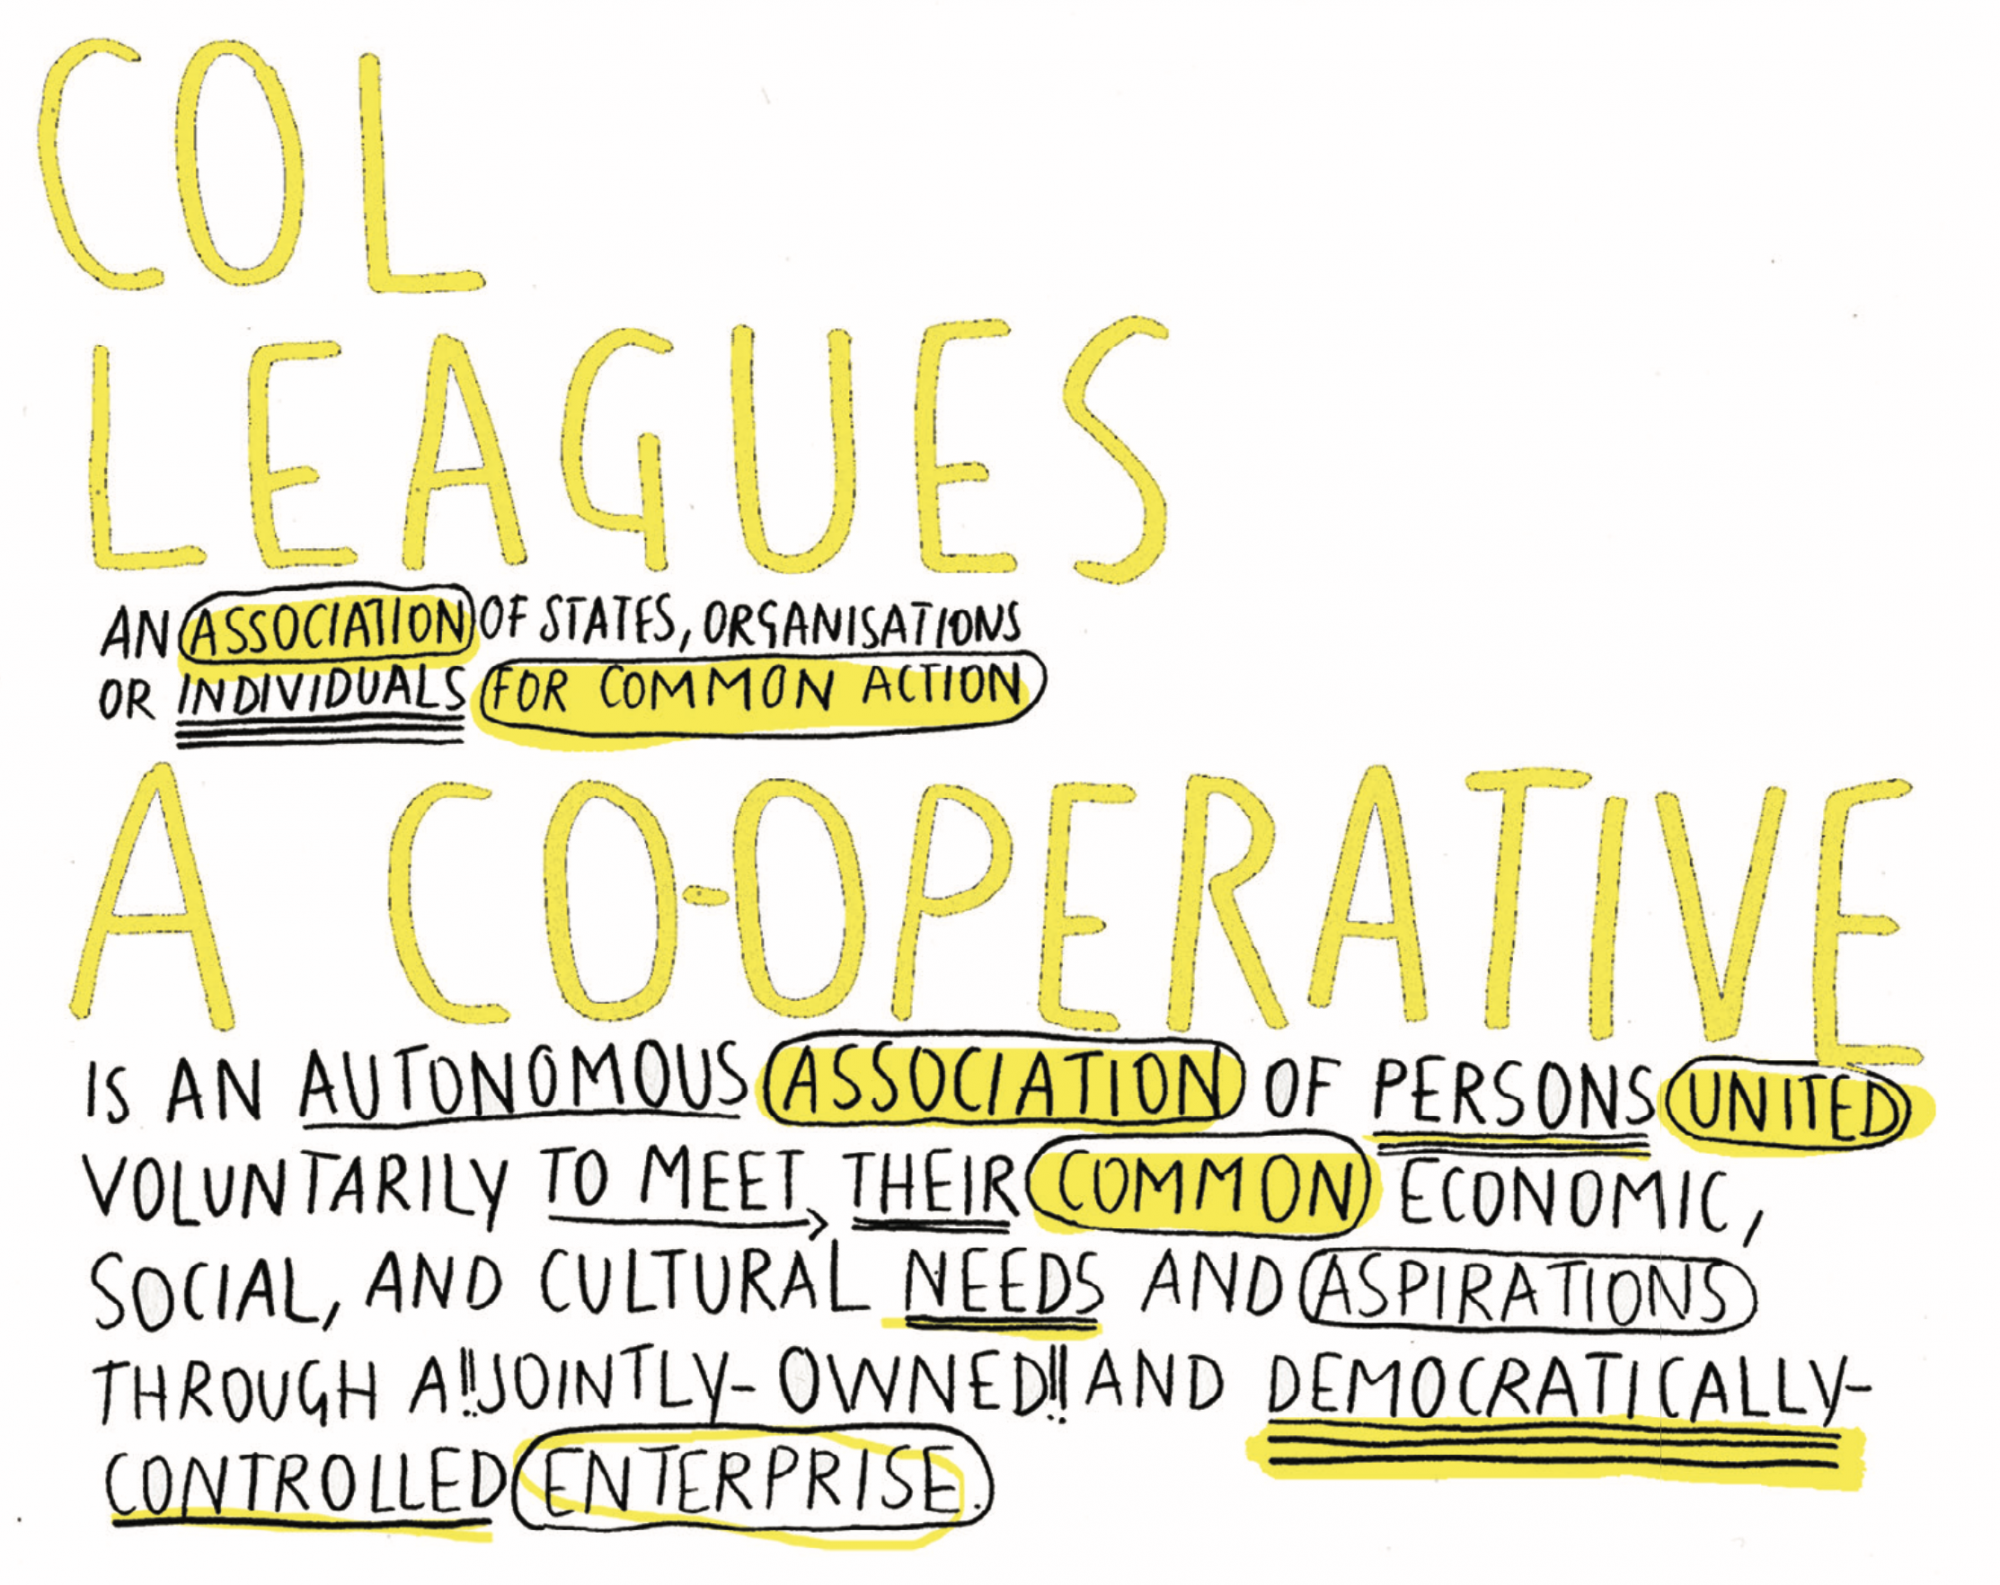 COL
LEAGUES
AN ASSOCIATION OF STATES, ORGANISATIONS
OR INDIVIDUALS FOR COMMON ACTION
A CO-OPERATIVE
IS AN AUTONOMOUS ASSOCIATION OF PERSONS UNITED
VOLUNTARILY TO MEET THEIR COMMON ECONOMIC,
SOCIAL, AND CULTURAL NEEDS AND ASPIRATIONS
THROUGH A!!JOINTLY-OWNED!! AND DEMOCRATICALLY-
CONTROLLED ENTERPRISE.